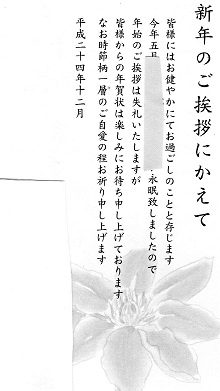 新年のご挨拶にかえて
皆様にはお健やかにてお過ごしのことと存じます
今年五月 永眠致しましたので
年始のご挨拶は失礼いたしますが
皆様からの年賀状は楽しみにお待ち申し上げております
なお時節柄一層のご自愛の程お祈り申し上げます
平成二十四年十二月